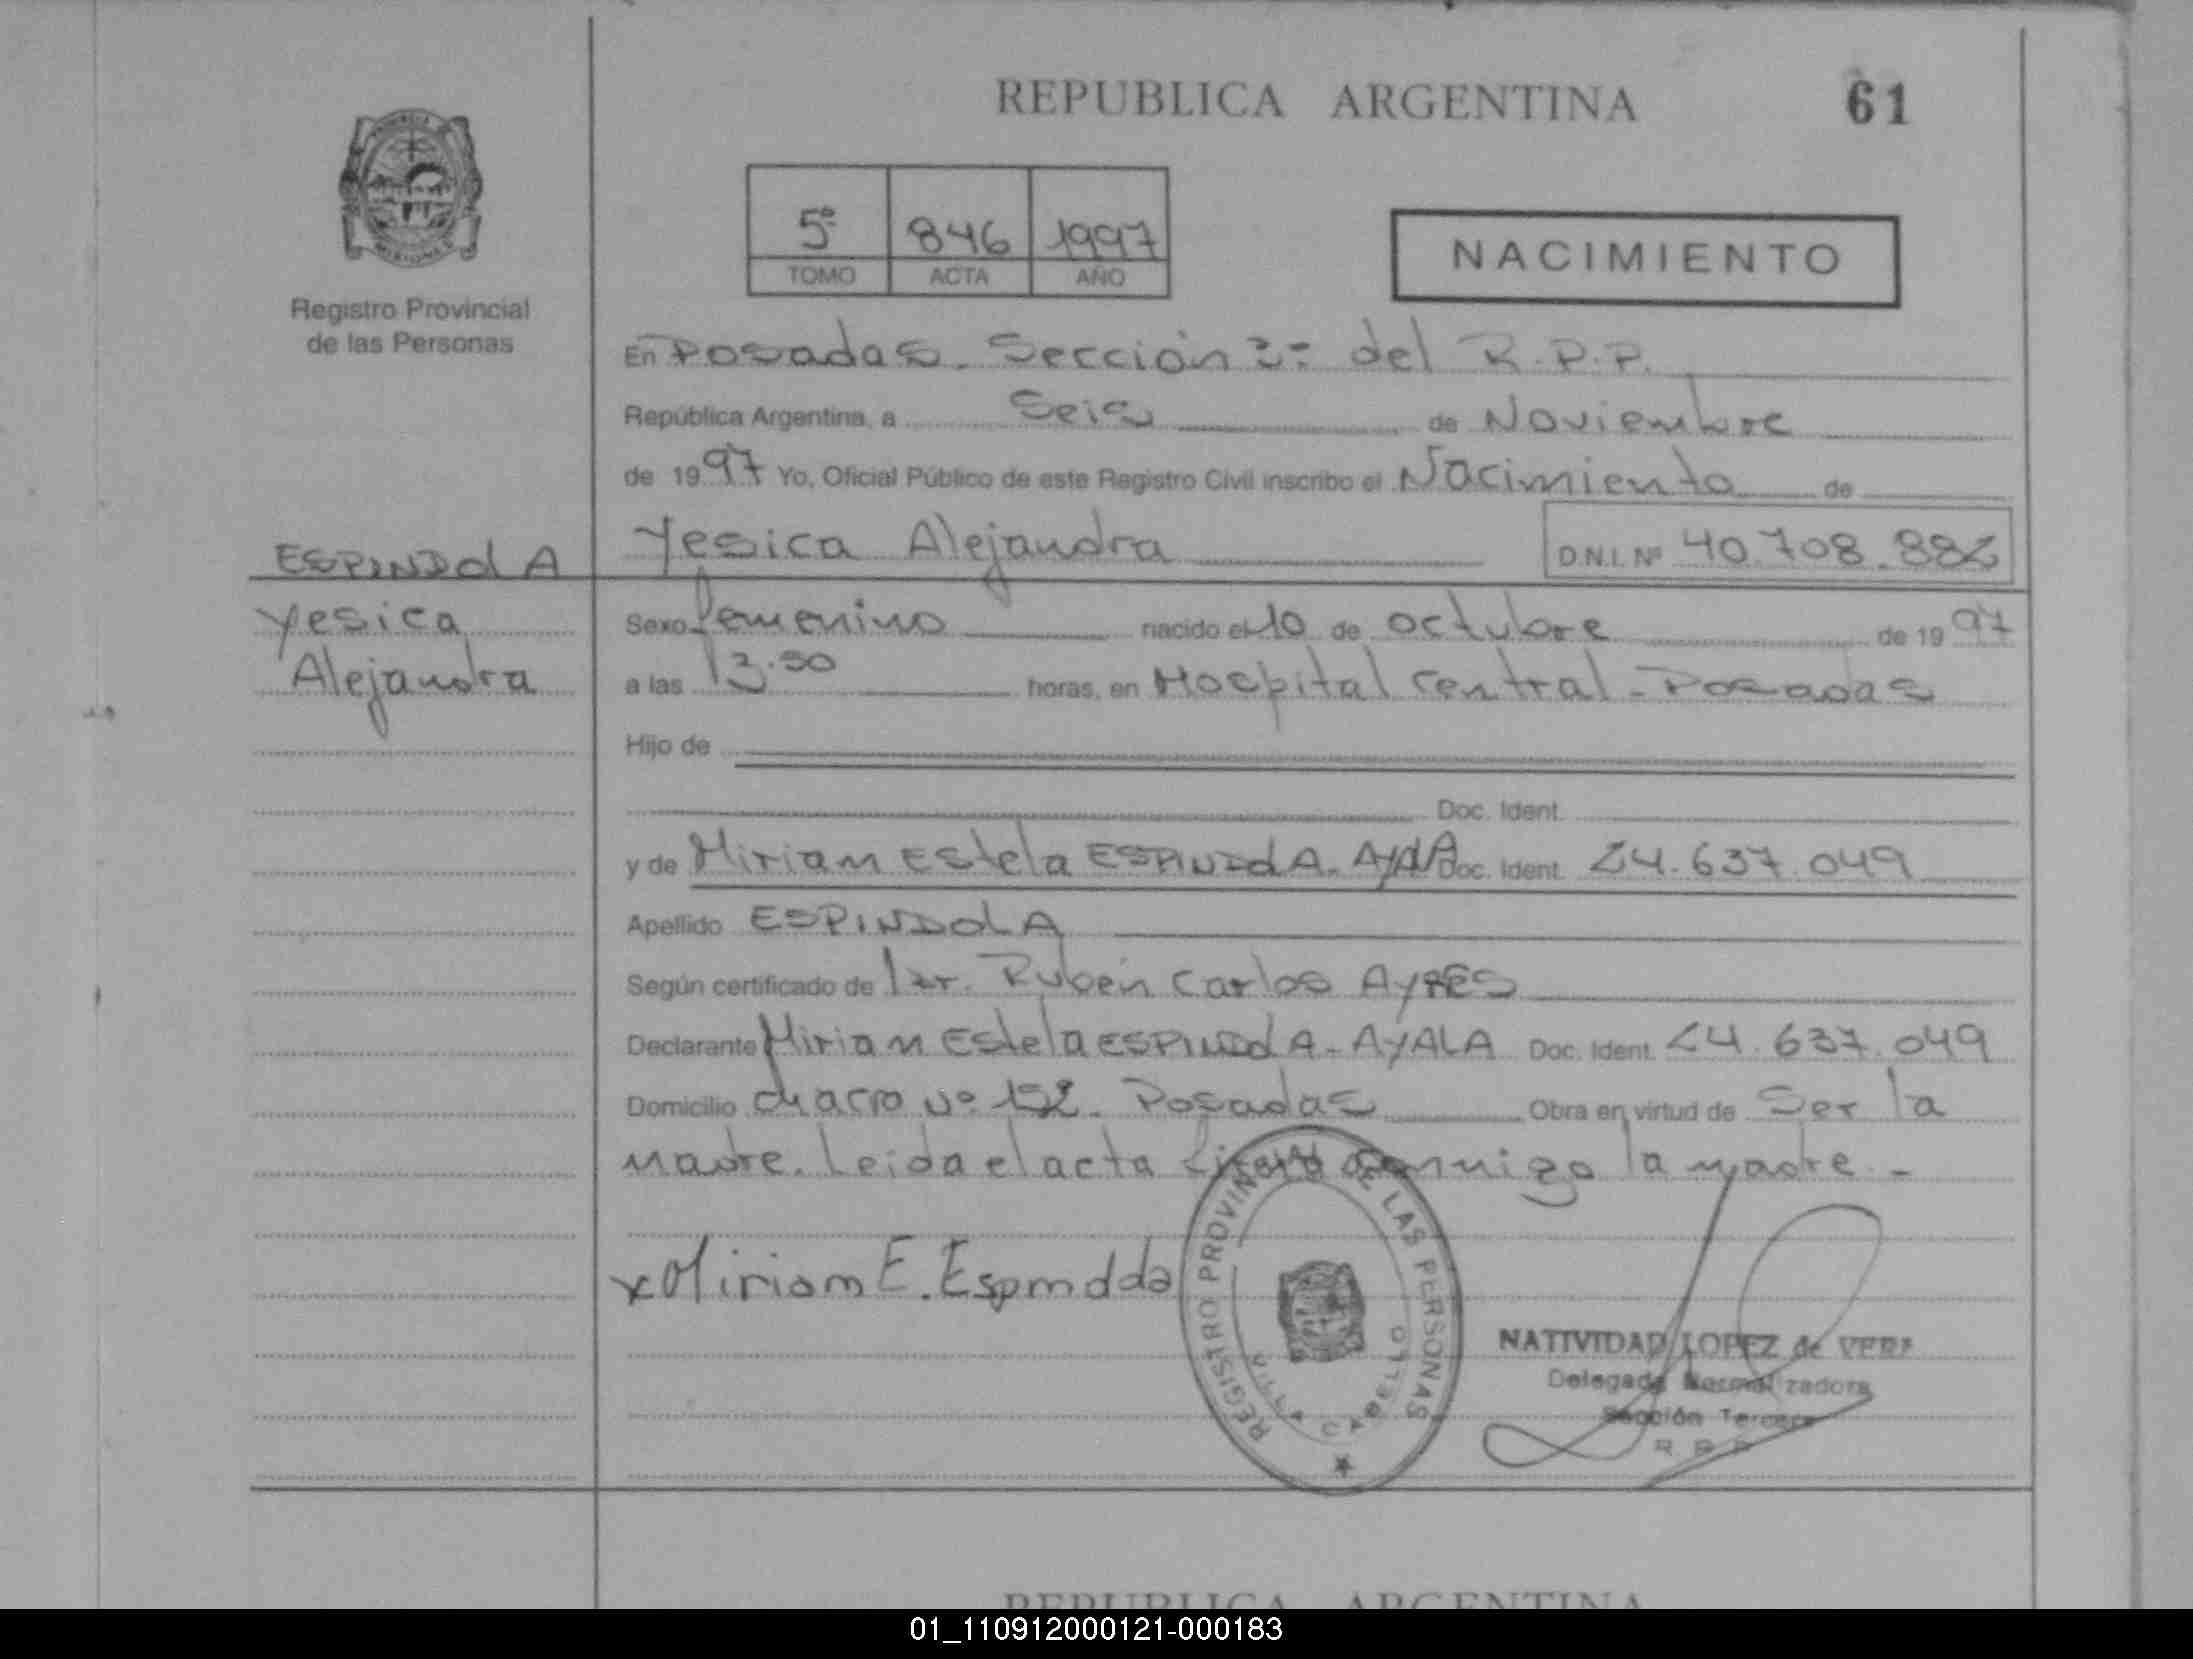 REPUBLICA ARGENTINA
61
5º 846 1997
TOMO ACTA AÑO
NACIMIENTO
Registro Provincial
de las Personas
En Posadas. Sección 3º del R.P.P.
República Argentina, a Seis de Noviembre
de 1997 Yo, Oficial Público de este Registro Civil inscribo el Nacimiento de
Yesica Alejandra D.N.I. Nº 40.708.886
ESPINDOLA
Yesica
Alejandra
Sexo femenino nacido el 10 de octubre de 1997
a las horas, en Hospital Central - Posadas
Hijo de
Doc. Ident.
y de Miriam Estela ESPINDOLA - AYALA Doc. Ident. 24.637.049
Apellido ESPINDOLA
Según certificado de Rubén Carlos AYRES
Declarante Miriam Estela ESPINDOLA - AYALA Doc. Ident. 24.637.049
Domicilio chacra Nº 152 - Posadas Obra en virtud de Ser la
madre. Leida el acta firma conmigo la madre. -
x Miriam E. Espindola
REGISTRO PROVINCIAL DE LAS PERSONAS
VILLA CABELLO
NATIVIDAD LOPEZ de VERA
Delegada Normalizadora
Sección Tercera
R P P
REPUBLICA ARGENTINA
01_110912000121-000183